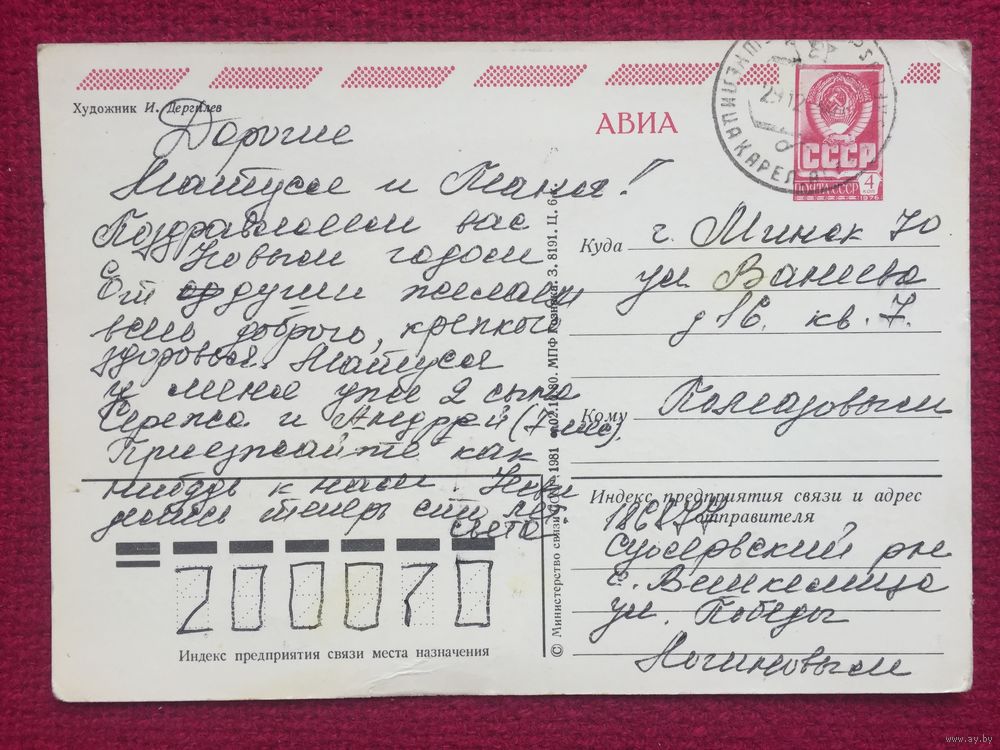 Художник И. Дергилев
АВИА
СССР
ПОЧТА СССР
4
КОП
1976
Дорогие
Натуся и Таня!
Поздравляем вас
с Новым годом
От души желаем
всего доброго, крепкого
здоровья. Натуся
у меня уже 2 сына
Сережа и Андрей (7 мес).
Приезжайте как
нибудь к нам.
теперь
Света
Куда г. Минск 70
ул. Ванеева
д 16. кв. 7.
Кому Помазовым
Индекс предприятия связи и адрес
отправителя
186877
Суоярвский р-н
с. Вешкелица
ул. Победы
Логиновым
200070
Индекс предприятия связи места назначения
© Министерство связи СССР 1981
8191. Ц. 6
www.ay.by